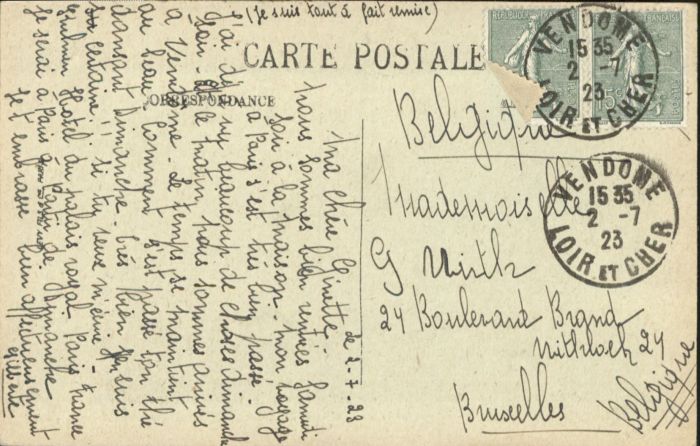 (Je suis tout à fait remise)
CARTE POSTALE
CORRESPONDANCE
RÉPUBLIQUE
FRANÇAISE
VENDOME
15 35
2 -7
23
LOIR ET CHER
VENDOME
15 35
2 -7
23
LOIR ET CHER
Belgique
Mademoiselle
G Wirtz
24 Boulevard Brand
Withlock 24
Bruxelles
Belgique
le 2-7-23
Ma chère Ginette
nous sommes bien rentrées Samedi
soir à la maison. mon voyage
à Paris s'est très bien passé
J'ai vu beaucoup de choses dimanche
matin, nous sommes arrivées
à Vendôme. Le temps se maintient
au beau. Comment s'est passé ton thé
dansant Dimanche. très bien j'en suis
certaine. si tu veux m'écrire
Hôtel du palais royal Paris France
je serai à Paris à partir de Dimanche
Je t'embrasse bien affectueusement
Gilberte